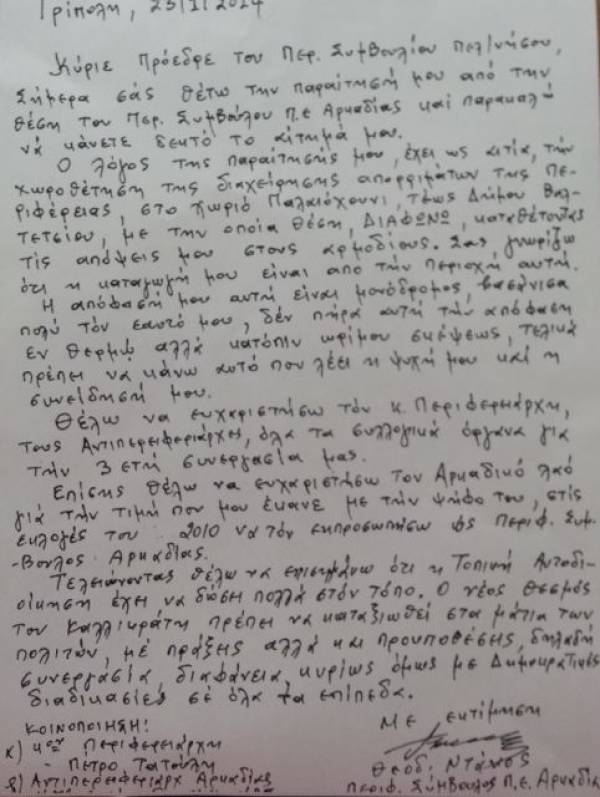 Τρίπολη, 23/1/2014
Κύριε Πρόεδρε του Περ. Συμβουλίου Πελ/νήσου,
Σήμερα σάς θέτω την παραίτησή μου από την
θέση του Περ. Συμβούλου Π.Ε Αρκαδίας καί παρακαλώ
νά κάνετε δεκτό το αίτημά μου.
Ο λόγος της παραίτησής μου, έχει ως αιτία, τήν
χωροθέτηση της διαχείρησης απορριμάτων της Πε-
ριφέρειας, στο χωριό Παλαιόχουνι, τέως Δήμου Βαλ-
τετσίου, με την οποία θέση, ΔΙΑΦΩΝΩ, καταθέτοντας
τίς απόψεις μου στους αρμοδίους. Σας γνωρίζω
ότι η καταγωγή μου είναι από τήν περιοχή αυτή.
Η απόφασή μου αυτή είναι μονόδρομος, βασάνισα
πολύ τόν εαυτό μου, δέν πήρα αυτή τήν απόφαση
εν θερμώ αλλά κατόπιν ωρίμου σκέψεως, τελικά
πρέπει να κάνω αυτό που λέει η ψυχή μου καί η
συνείδησή μου.
Θέλω να ευχαριστήσω τόν κ. Περιφερειάρχη,
τους Αντιπεριφεριάρχες, όλα τα συλλογικά όργανα για
τήν 3 ετή συνεργασία μας.
Επίσης θέλω να ευχαριστήσω τον Αρκαδικό λαό
γιά τήν τιμή που μου έκανε με τήν ψήφο του, στίς
εκλογές του 2010 να τόν εκπροσωπήσω ώς Περιφ. Συμ-
-βουλος Αρκαδίας.
Τελειώνοντας θέλω να επισημάνω ότι η Τοπική Αυτοδι-
οίκηση έχει να δώσει πολλά στόν τόπο. Ο νέος θεσμός
του Καλλικράτη πρέπει να καταξιωθεί στα μάτια των
πολιτών, μέ πράξεις αλλά και προυποθέσης, δηλαδή
συνεργασία, διαφάνεια, κυρίως όμως με Δημοκρατικές
διαδικασίες σέ όλα τα επίπεδα.
ΚΟΙΝΟΠΟΙΗΣΗ:
Με εκτίμηση
α) κον Περιφερειάρχη
- Πέτρο Τατούλη
Θεόδ. Ντάνος
β) Αντιπεριφεριαρχ Αρκαδίας
Περιφ. Σύμβουλος Π.Ε. Αρκαδία